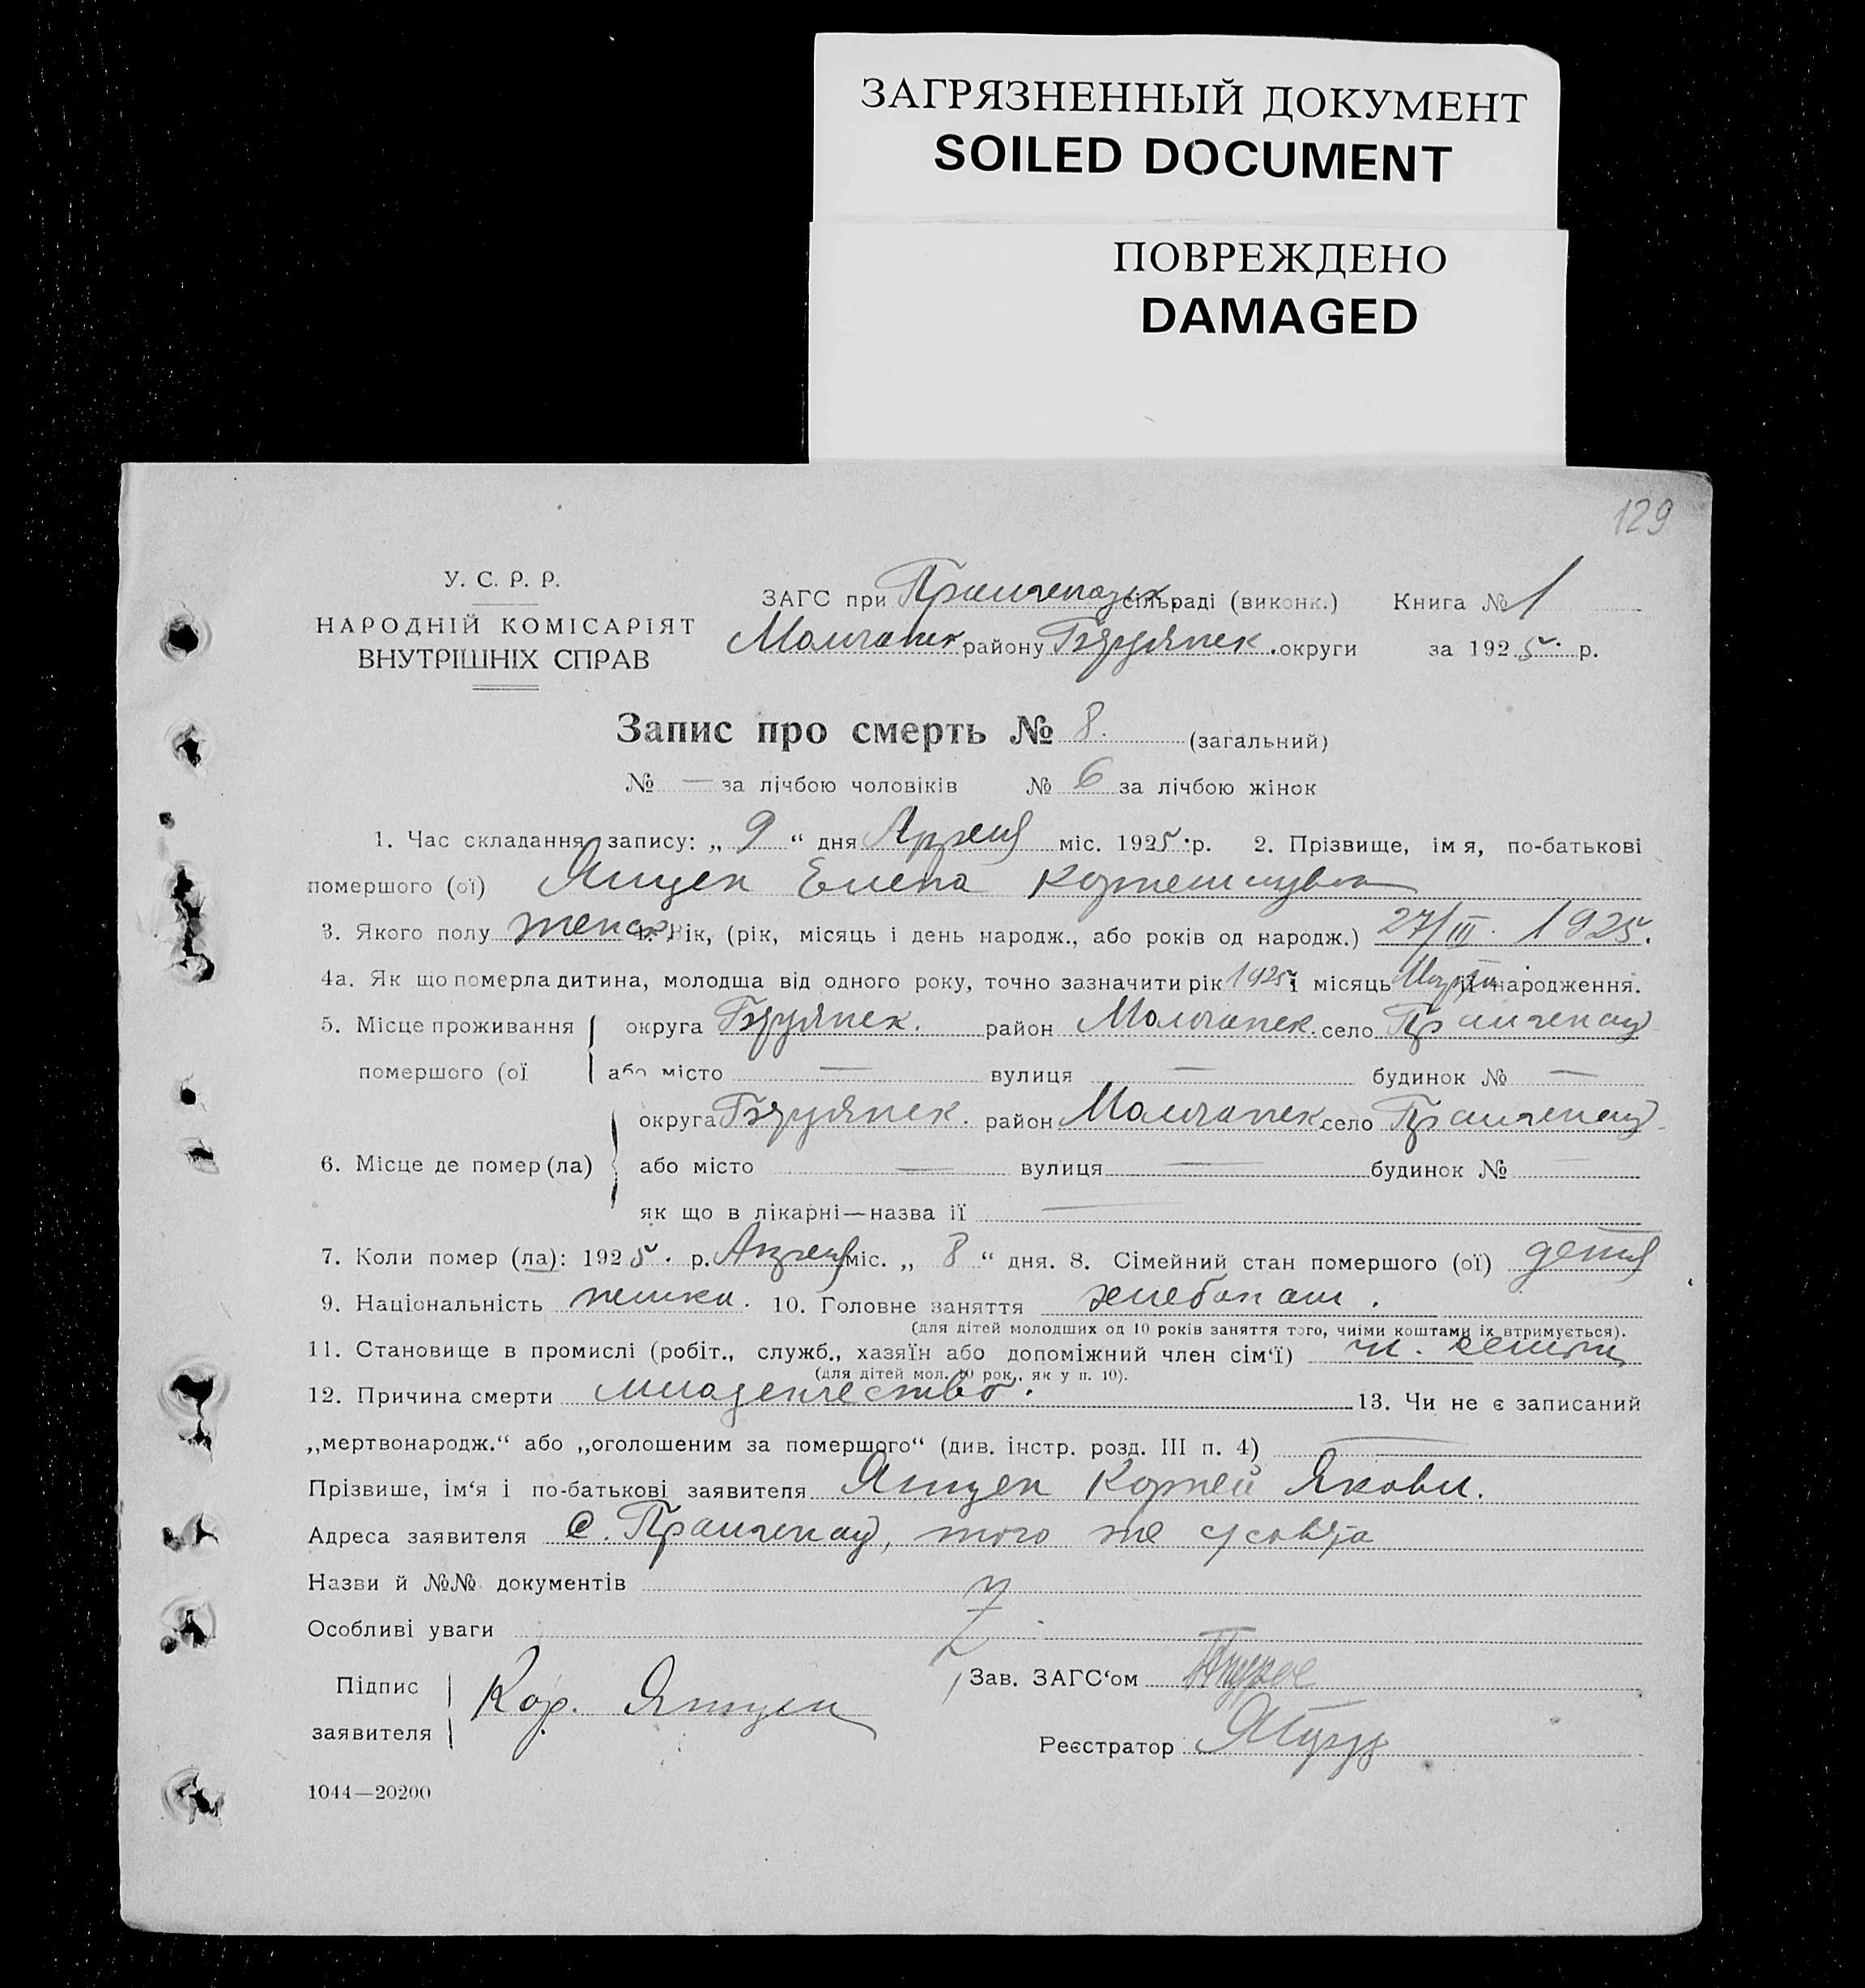 ЗАГРЯЗНЕННЫЙ ДОКУМЕНТ
SOILED DOCUMENT
ПОВРЕЖДЕНО
DAMAGED
129
У. С. Р. Р.
НАРОДНІЙ КОМІСАРІЯТ
ВНУТРІШНІХ СПРАВ
ЗАГС при сільраді (виконк.) Книга № 1
Молочанск району Бердянск. округи за 1925. р.
Запис про смерть № 8. (загальний)
№ — за лічбою чоловіків № 6 за лічбою жінок
1. Час складання запису: „ 9 “ дня Апреля міс. 1925. р. 2. Прізвище, імя, по-батькові
помершого (ої) Янцен Елена Корнелиувна
3. Якого полу женск. 4. Вік, (рік, місяць і день народж., або років од народж.) 27/III. 1925.
4а. Як що померла дитина, молодша від одного року, точно зазначити рік 1925 і місяць Марта її народження.
5. Місце проживання округа Бердянск. район Молочанск. село Пришенау
помершого (ої або місто — вулиця — будинок № —
округа Бердянск. район Молочанск село Пришенау
6. Місце де помер (ла) або місто — вулиця — будинок № —
як що в лікарні—назва її —
7. Коли помер (ла): 1925. р. Апреля міс. „ 8 “ дня. 8. Сімейний стан помершого (ої) детя
9. Національність немка. 10. Головне заняття хлебопаш.
(для дітей молодших од 10 років заняття того, чиїми коштами їх втримується).
11. Становище в промислі (робіт., служб., хазяїн або допоміжний член сім‘ї) чл. семьи
(для дітей мол. 10 рок., як у п. 10).
12. Причина смерти младенчество. 13. Чи не є записаний
„мертвонародж.“ або „оголошеним за помершого“ (див. інстр. розд. III п. 4) —
Прізвише, ім‘я і по-батькові заявителя Янцен Корней Яковл.
Адреса заявителя С. того же с/совета
Назви й №№ документів
Особливі уваги
Підпис
заявителя
Кор. Янцен
Зав. ЗАГС‘ом
Реєстратор
1044—20200